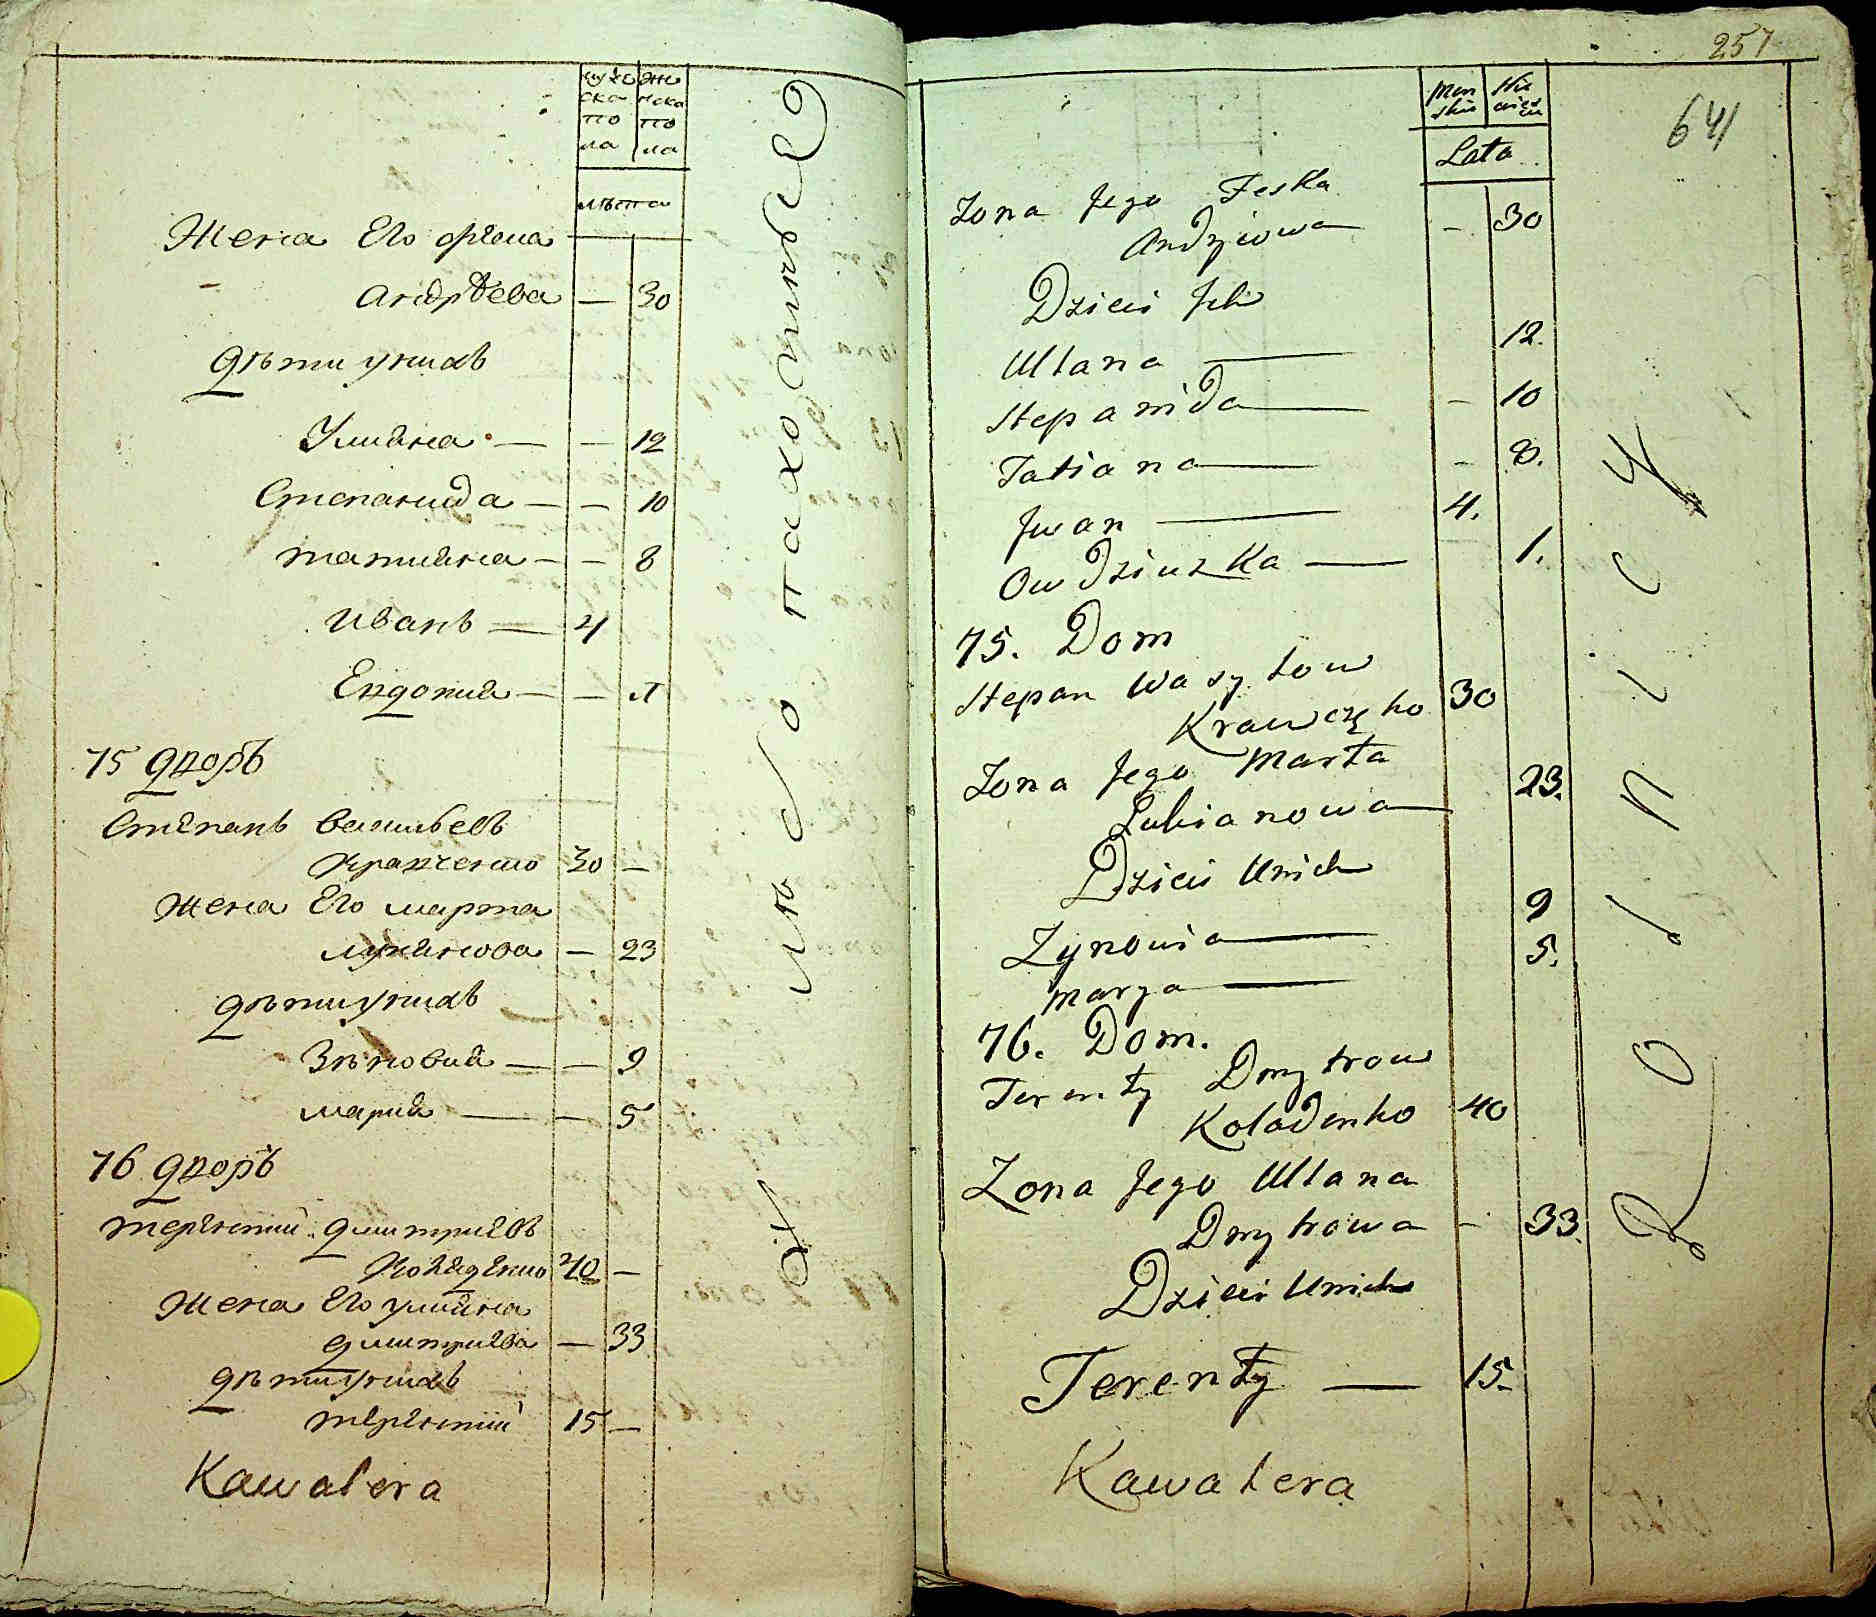 муже
ска
по
ла
же
нска
по
ла
лѣта
Жена Его
Андрѣева — 30
дѣти у нихъ
Улияна — — 12
Степанида — — 10
татияна — — 8
Иванъ — 4
Евдокия — — 1
75 дворъ
Степанъ Васильевъ
Кравченко 30 —
Жена Его марта
лукянова — 23
дѣти у нихъ
Зѣновия — — 9
мария — — 5
76 дворъ
терентий дмитриевъ
Коладенко 40 —
Жена Его улияна
дмитриева — 33
дѣти у нихъ
терентий 15 —
Kawalera
257
641
Męn
skie
Nie
Lata
Zona Jego Feska
Andzijowa — 30
Dzieci Ich
Ulana — 12.
Stepanida — - 10
Tatiana — - 8.
Jwan — 4.
Owdziuzka — 1.
75. Dom
Stepan Wasylow
Krawczęko 30
Zona Jego Marta
Lukianowa — 23.
Dzieci Unich
Zynowia — 9
Marya — 5.
76. Dom.
Terenty Dmytrow
Koladenko 40
Zona Jego Ulana
Dmytrowa - 33.
Dzieci Unich
Terenty — 15.
Kawalera
Rolnicy